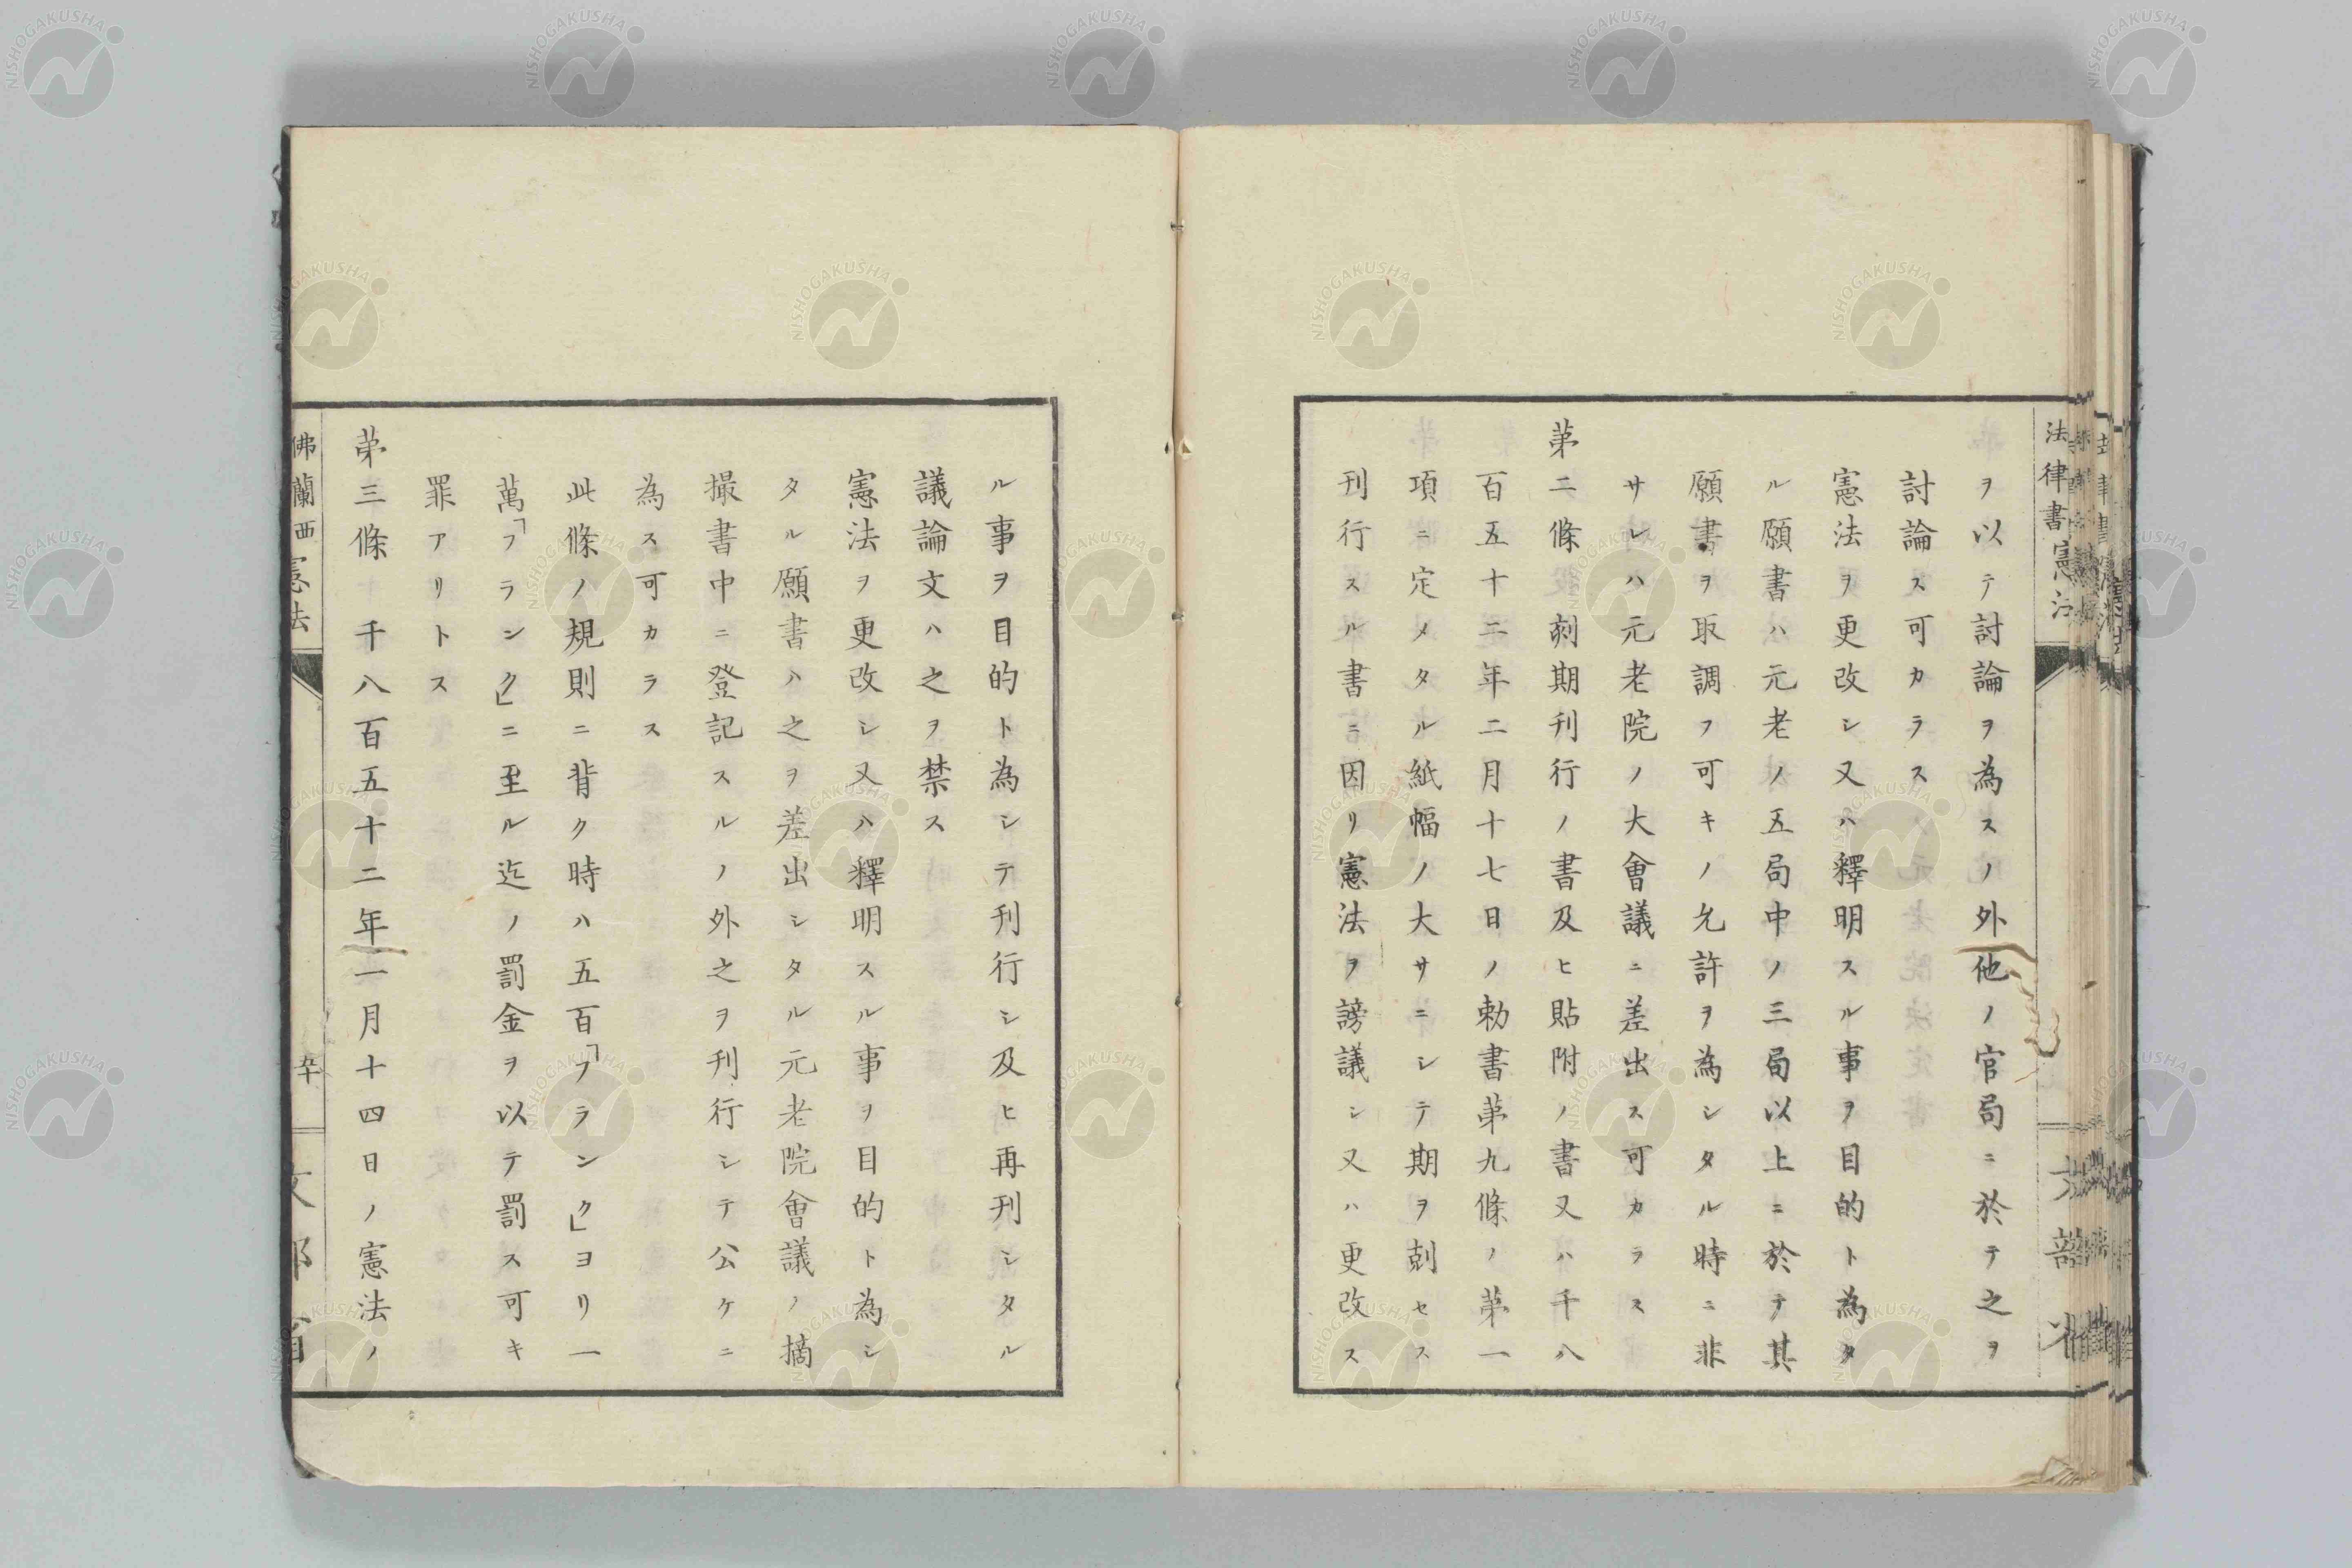 法律書憲法
ヲ以テ討論ヲ為スノ外他ノ官局ニ於テ之ヲ
討論ス可カラス
憲法ヲ更改シ又ハ釋明スル事ヲ目的ト為タ
ル願書ハ元老ノ五局中ノ三局以上ニ於テ其
願書ヲ取調フ可キノ允許ヲ為シタル時ニ非
サレハ元老院ノ大會議ニ差出ス可カラス
第二條 刻期刊行ノ書及ヒ貼附ノ書又ハ千八
百五十二年二月十七日ノ勅書第九條ノ第一
項ニ定メタル紙幅ノ大サニシテ期ヲ剋セス
刊行スル書ニ因リ憲法ヲ謗議シ又ハ更改ス
ル事ヲ目的ト為シテ刊行シ及ヒ再刊シタル
議論文ハ之ヲ禁ス
憲法ヲ更改シ又ハ釋明スル事ヲ目的ト為シ
タル願書ハ之ヲ差出シタル元老院會議ノ摘
撮書中ニ登記スルノ外之ヲ刊行シテ公ケニ
為ス可カラス
此條ノ規則ニ背ク時ハ五百「フランク」ヨリ一
萬「フランク」ニ至ル迄ノ罰金ヲ以テ罰ス可キ
罪アリトス
第三條 千八百五十二年一月十四日ノ憲法ノ
佛蘭西憲法
文部省
NISHOGAKUSHA